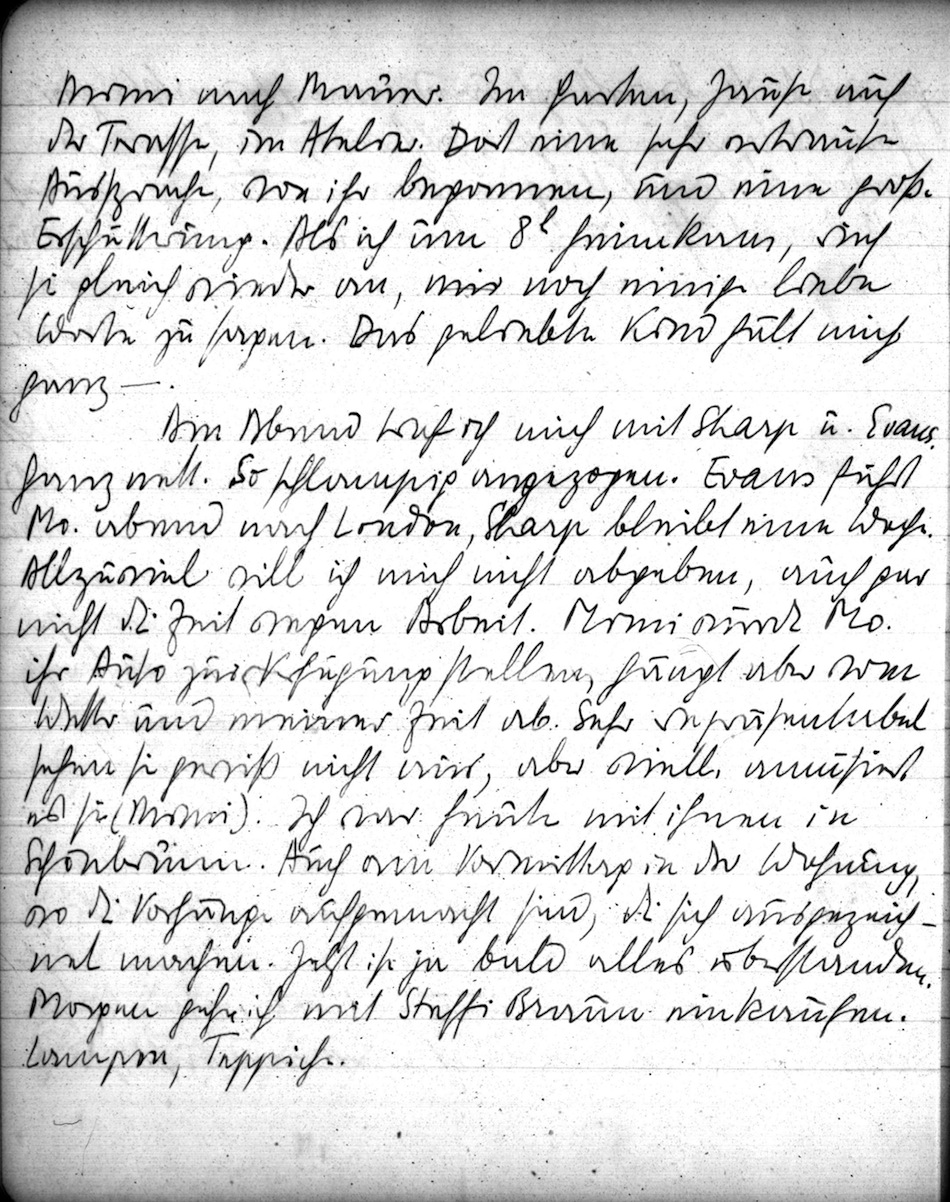 Mimi nach Mauer. Im Garten, Jause auf
der Terasse, im Atelier. Dort eine sehr vertraute
Aussprache, von ihr begonnen, und eine große
Erschütterung. Als ich um 8h heimkam, rief
sie gleich wieder an, mir noch einige liebe
Worte zu sagen. Das geliebte Kind hält mich
ganz —.
Am Abend traf ich mich mit Sharp u. Evans.
Ganz nett. So schlampig angezogen. Evans fährt
Mo. abend nach London, Sharp bleibt eine Woche.
Allzuviel will ich mich nicht abgeben, auch gar
nicht die Zeit wegen Arbeit. Mimi würde Mo.
ihr Auto zur Verfügung stellen, hängt aber vom
Wetter und meiner Zeit ab. Sehr repräsentabel
sehen sie gewiß nicht aus, aber viell. amüsiert
es sie (Mimi). Ich war heute mit ihnen in
Schönbrunn. Auch am Vormittag in der Wohnung,
wo die Vorhänge aufgemacht sind, die sich ausgezeich-
net machen. Jetzt ist ja bald alles überstanden.
Morgen gehe ich mit Steffi Braun einkaufen.
Lampen, Teppiche.